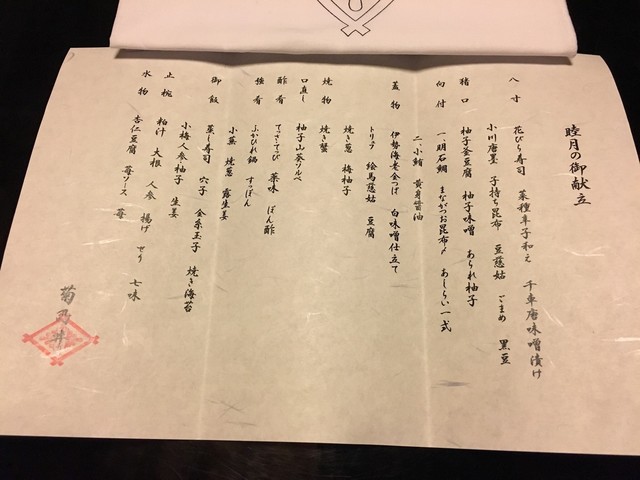 睦月の御献立
八寸 花びら寿司 菜種辛子和え 千車唐味噌漬け
小川唐墨 子持ち昆布 豆慈姑 ごまめ 黒豆
猪口 柚子釜豆腐 柚子味噌 あられ柚子
向付 一、明石鯛 まながつお昆布〆 あしらい一式
二、小鮪 黄身醤油
蓋物 伊勢海老葛つげ 白味噌仕立て
トリュフ 絵馬慈姑 豆腐
焼物 焼き葱 梅柚子
焼き蟹
口直し 柚子山葵ソルベ
酢肴 てっさ・てっぴ 薬味 ぽん酢
強肴 ふかひれ鍋 すっぽん
小蕪 焼葱 露生姜
御飯 蒸し寿司 穴子 金糸玉子 焼き海苔
小梅人参柚子 生姜
止椀 粕汁 大根 人参 揚げ せり 七味
水物 杏仁豆腐 苺ソース 苺
菊乃井